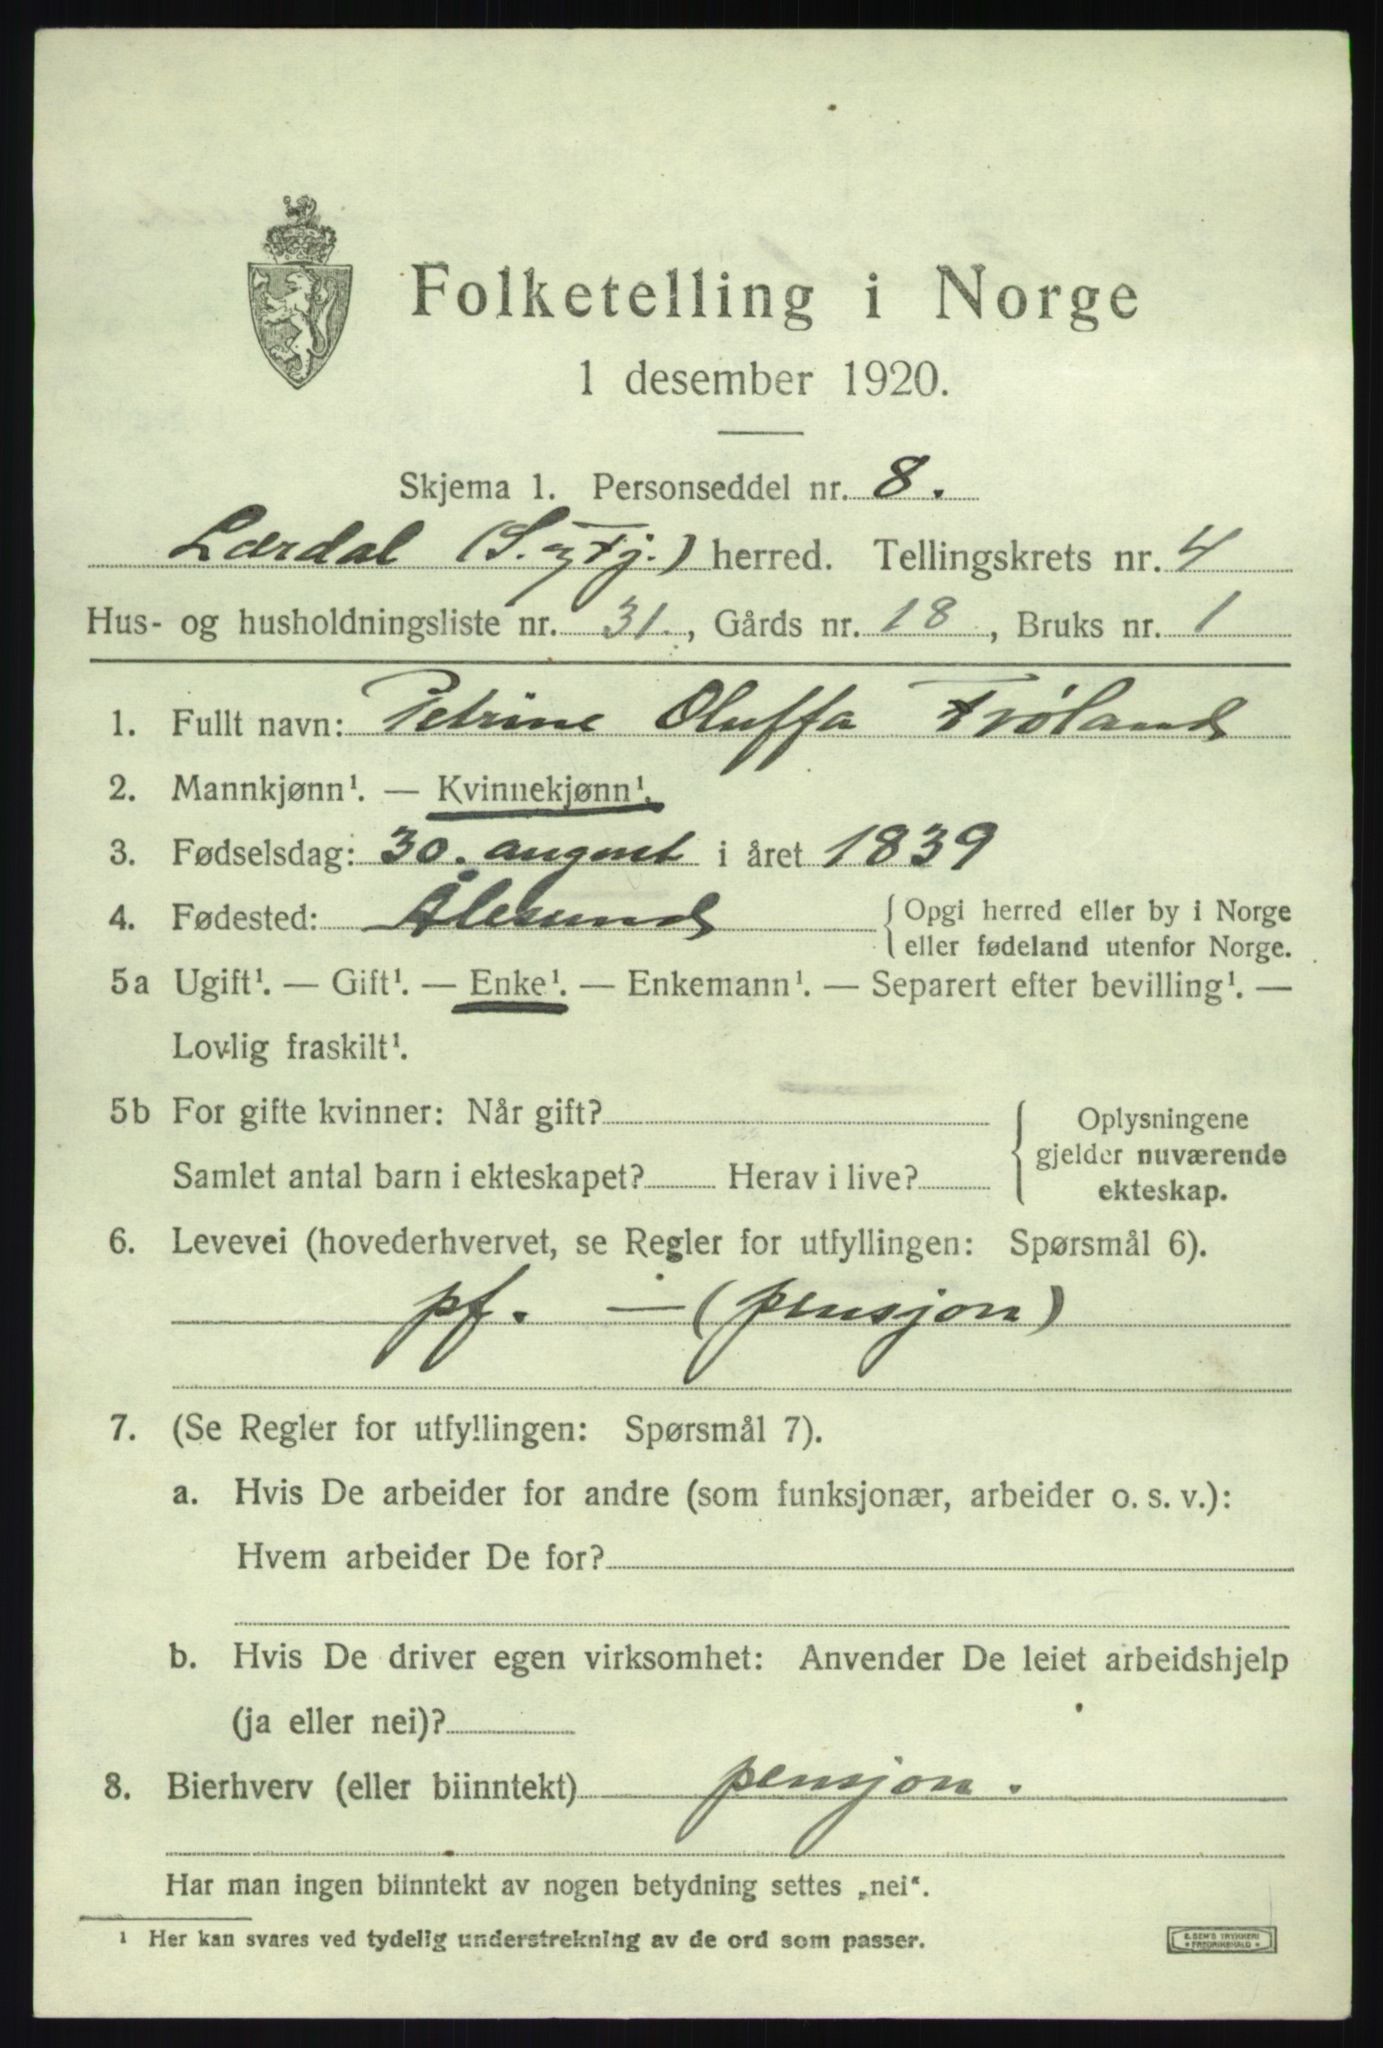 Folketelling i Norge
1 desember 1920.
Skjema 1. Personseddel nr. 8.
Lærdal (S. og Fj.) herred. Tellingskrets nr. 4
Hus- og husholdningsliste nr. 31., Gårds nr. 18, Bruks nr. 1
1. Fullt navn: Petrine Oluffa Frøland
2. Mannkjønn¹. — Kvinnekjønn¹.
3. Fødselsdag: 30. august i året 1839
4. Fødested: Ålesund {Opgi herred eller by i Norge
eller fødeland utenfor Norge.
5a Ugift¹. — Gift¹. — Enke¹. — Enkemann¹. — Separert efter bevilling¹. —
Lovlig fraskilt¹.
5b For gifte kvinner: Når gift?
Samlet antal barn i ekteskapet? Herav i live?
{Oplysningene
gjelder nuværende
ekteskap.
6. Levevei (hovederhvervet, se Regler for utfyllingen: Spørsmål 6).
pf. — (pensjon)
7. (Se Regler for utfyllingen: Spørsmål 7).
a. Hvis De arbeider for andre (som funksjonær, arbeider o. s. v.):
Hvem arbeider De for?
b. Hvis De driver egen virksomhet: Anvender De leiet arbeidshjelp
(ja eller nei)?
8. Bierhverv (eller biinntekt) pensjon.
Har man ingen biinntekt av nogen betydning settes „nei“.
¹ Her kan svares ved tydelig understrekning av de ord som passer.
E. SEM'S TRYKKERI
* FREDRIKSHALD *